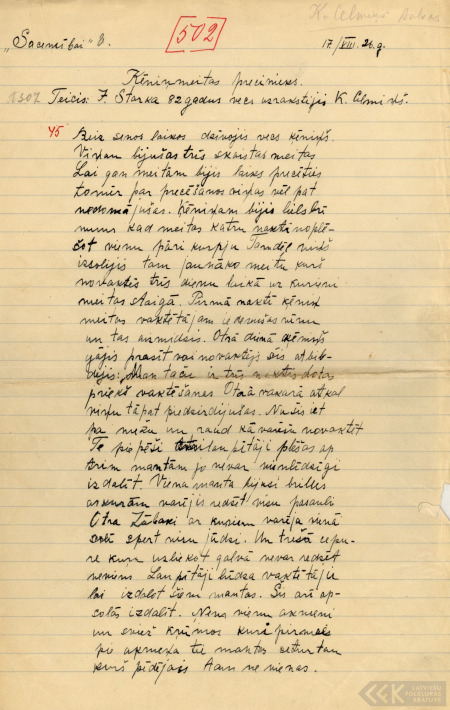 K. Celmiņš
502
„Sacensībai” 8. 17./VIII. 26. g.
Ķēniņmeitas precinieks.
1307 Teicis: J. Starka 82 gadus vecs uzrakstījis K. Celmiņš.
45 Bijis senos laikos dzīvojis vecs ķēniņš.
Viņam bijušas trīs skaistas meitas
Lai gan meitām bijis laiks precēties
tomēr par precēšanos viņas vēl pat
nedomājušas. Ķēniņam bijis liels brī
nums kad meitas katru nakti noplē-
šot vienu pāri kurpju Tamdēļ viņš
izsolijis tam jaunāko meitu kurš
novaktēs trīs dienu laikā uz kurieni
meitas staigā. Pirmā naktī ķēniņ
meitas vaktētājam iedevušas vīnu
un tas aizmidzis. Otrā dienā ķēniņš
gājis prasīt vai novaktējis šis atbil-
dējis: Man taču ir trīs naktis dotas
priekš vaktēšanas Otrā vakarā atkal
viņu tāpat piedzirdijušas. Nu šis iet
pa mežu un raud kā varēšu novaktēt
Te piepēši laupītāji plēšas ap
trim mantām jo nevar vienlīdzīgi
izdalīt. Viena manta bijusi brilles
ar kurām varējis redzēt visu pasauli
Otra Zābaki ar kuriem varēja vienā
solī spert vienu jūdzi. Un trešā cepu-
re kuru uzliekot galvā nevar redzēt
neviens Laupītāji lūdza vaktētāju
lai izdalot šiem mantas. Šis arī ap-
solās izdalīt. Ņems vienu akmeni
un sviež krūmos kurš pirmais
pie akmeņa tie mantas četur tan
kurš pēdējais tam ne vienas.
LATVIEŠU
FOLKLORAS
KRĀTUVE